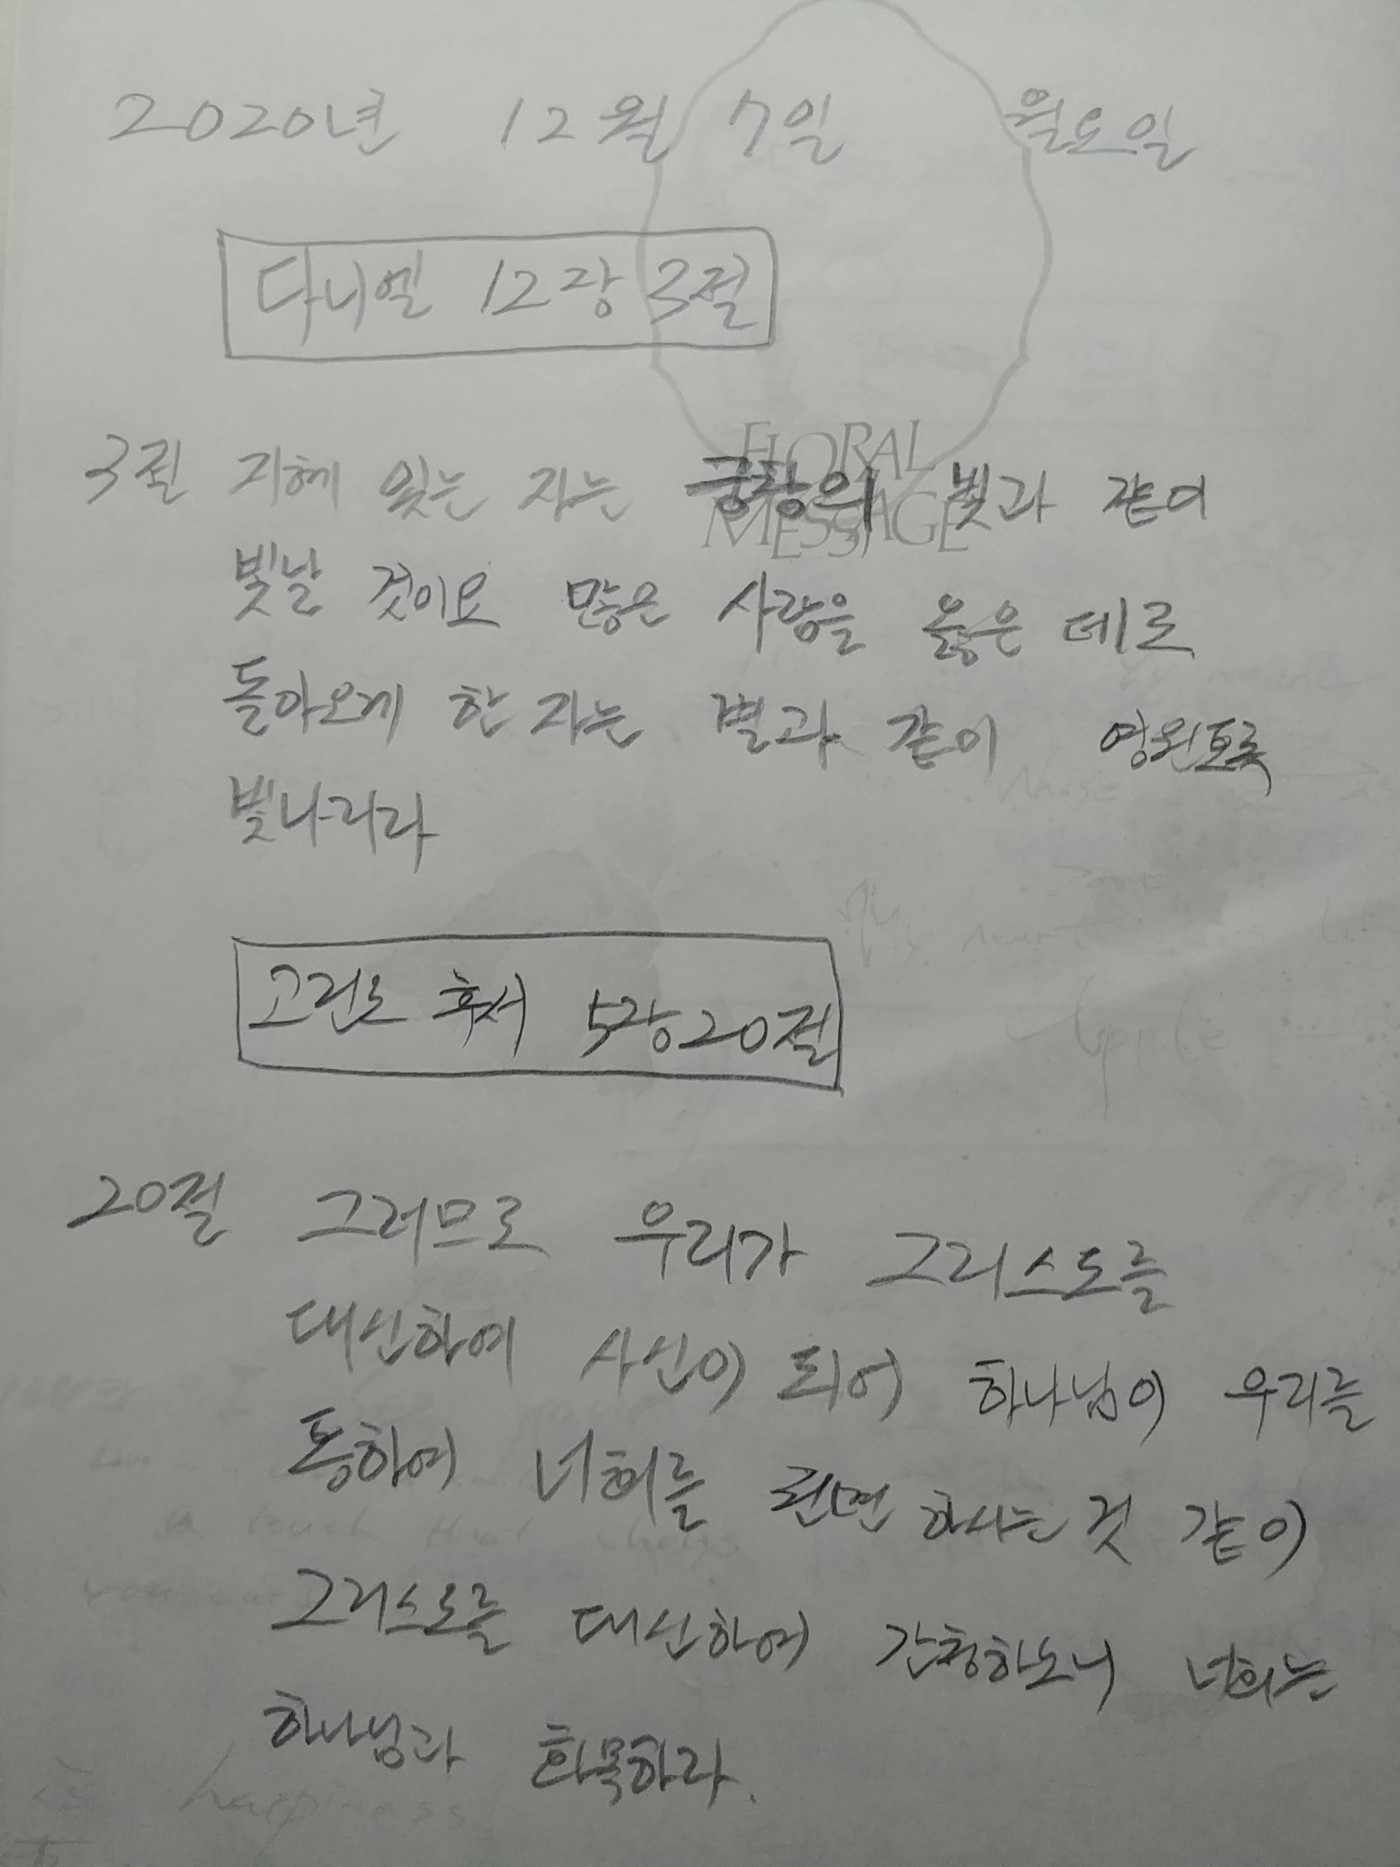 2020년 12월 7일 월요일
다니엘 12장 3절
FLORAL
MESSAGE
3절 지혜 있는 자는 궁창의 빛과 같이
빛날 것이요 많은 사람을 옳은 데로
돌아오게 한 자는 별과 같이 영원토록
빛나리라
고린도 후서 5장 20절
20절 그러므로 우리가 그리스도를
대신하여 사신이 되어 하나님이 우리를
통하여 너희를 권면 하시는 것 같이
그리스도를 대신하여 간청하노니 너희는
하나님과 화목하라.
Apple
a touch that
happiness